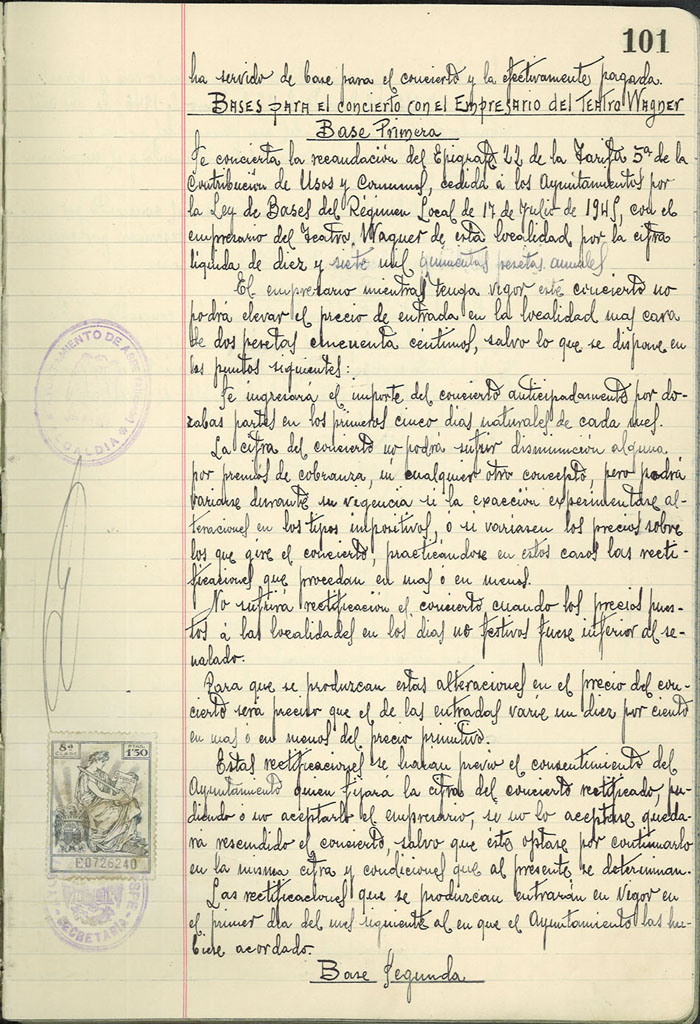 101
ha servido de base para el concierto y la efectivamente pagada.
BASES PARA EL CONCIERTO CON EL EMPRESARIO DEL TEATRO WAGNER
Base Primera
Se concierta la recaudación del Epigrafe 22 de la Tarifa 5ª de la
Contribución de Usos y Consumos, cedida á los Ayuntamientos por
la Ley de Bases del Régimen Local de 17 de Julio de 1945, con el
empresario del Teatro Wagner de esta localidad por la cifra
liquida de diez y siete mil quinientas pesetas anuales
El empresario mientras tenga vigor este concierto no
podrá elevar el precio de entrada en la localidad mas cara
de dos pesetas cincuenta centimos, salvo lo que se dispone en
los puntos siguientes:
Se ingresará el importe del concierto anticipadamente por do-
zabas partes en los primeros cinco dias naturales de cada mes.
La cifra del concierto no podrá sufrir disminución alguna
por premios de cobranza, ni cualquier otro concepto, pero podrá
variarse durante su vigencia si la exacción experimentase al-
teraciones en los tipos impositivos, o si variasen los precios sobre
los que gire el concierto, practicándose en estos casos las recti-
ficaciones que procedan en mas ó en menos.
No sufrirá rectificación el concierto cuando los precios pues-
tos á las localidades en los dias no festivos fuese inferior al se-
ñalado.
Para que se produzcan estas alteraciones en el precio del con-
cierto será preciso que el de las entradas varie un diez por ciento
en mas ó en menos del precio primitivo.
Estas rectificaciones se haran previo el consentimiento del
Ayuntamiento quien fijará la cifra del concierto rectificado, pu-
diendo o no aceptarlo el empresario, si no lo aceptase queda-
rá rescindido el concierto, salvo que éste optase por continuarlo
en la misma cifra y condiciones que al presente se determinan.
Las rectificaciones que se produzcan entrarán en vigor en
el primer dia del mes siguiente al en que el Ayuntamiento las hu-
biese acordado.
Base Segunda
AYUNTAMIENTO DE ASPE
ALCALDIA
8ª CLASE
PTAS. 1'50
E0726240
ASPE
SECRETARIA